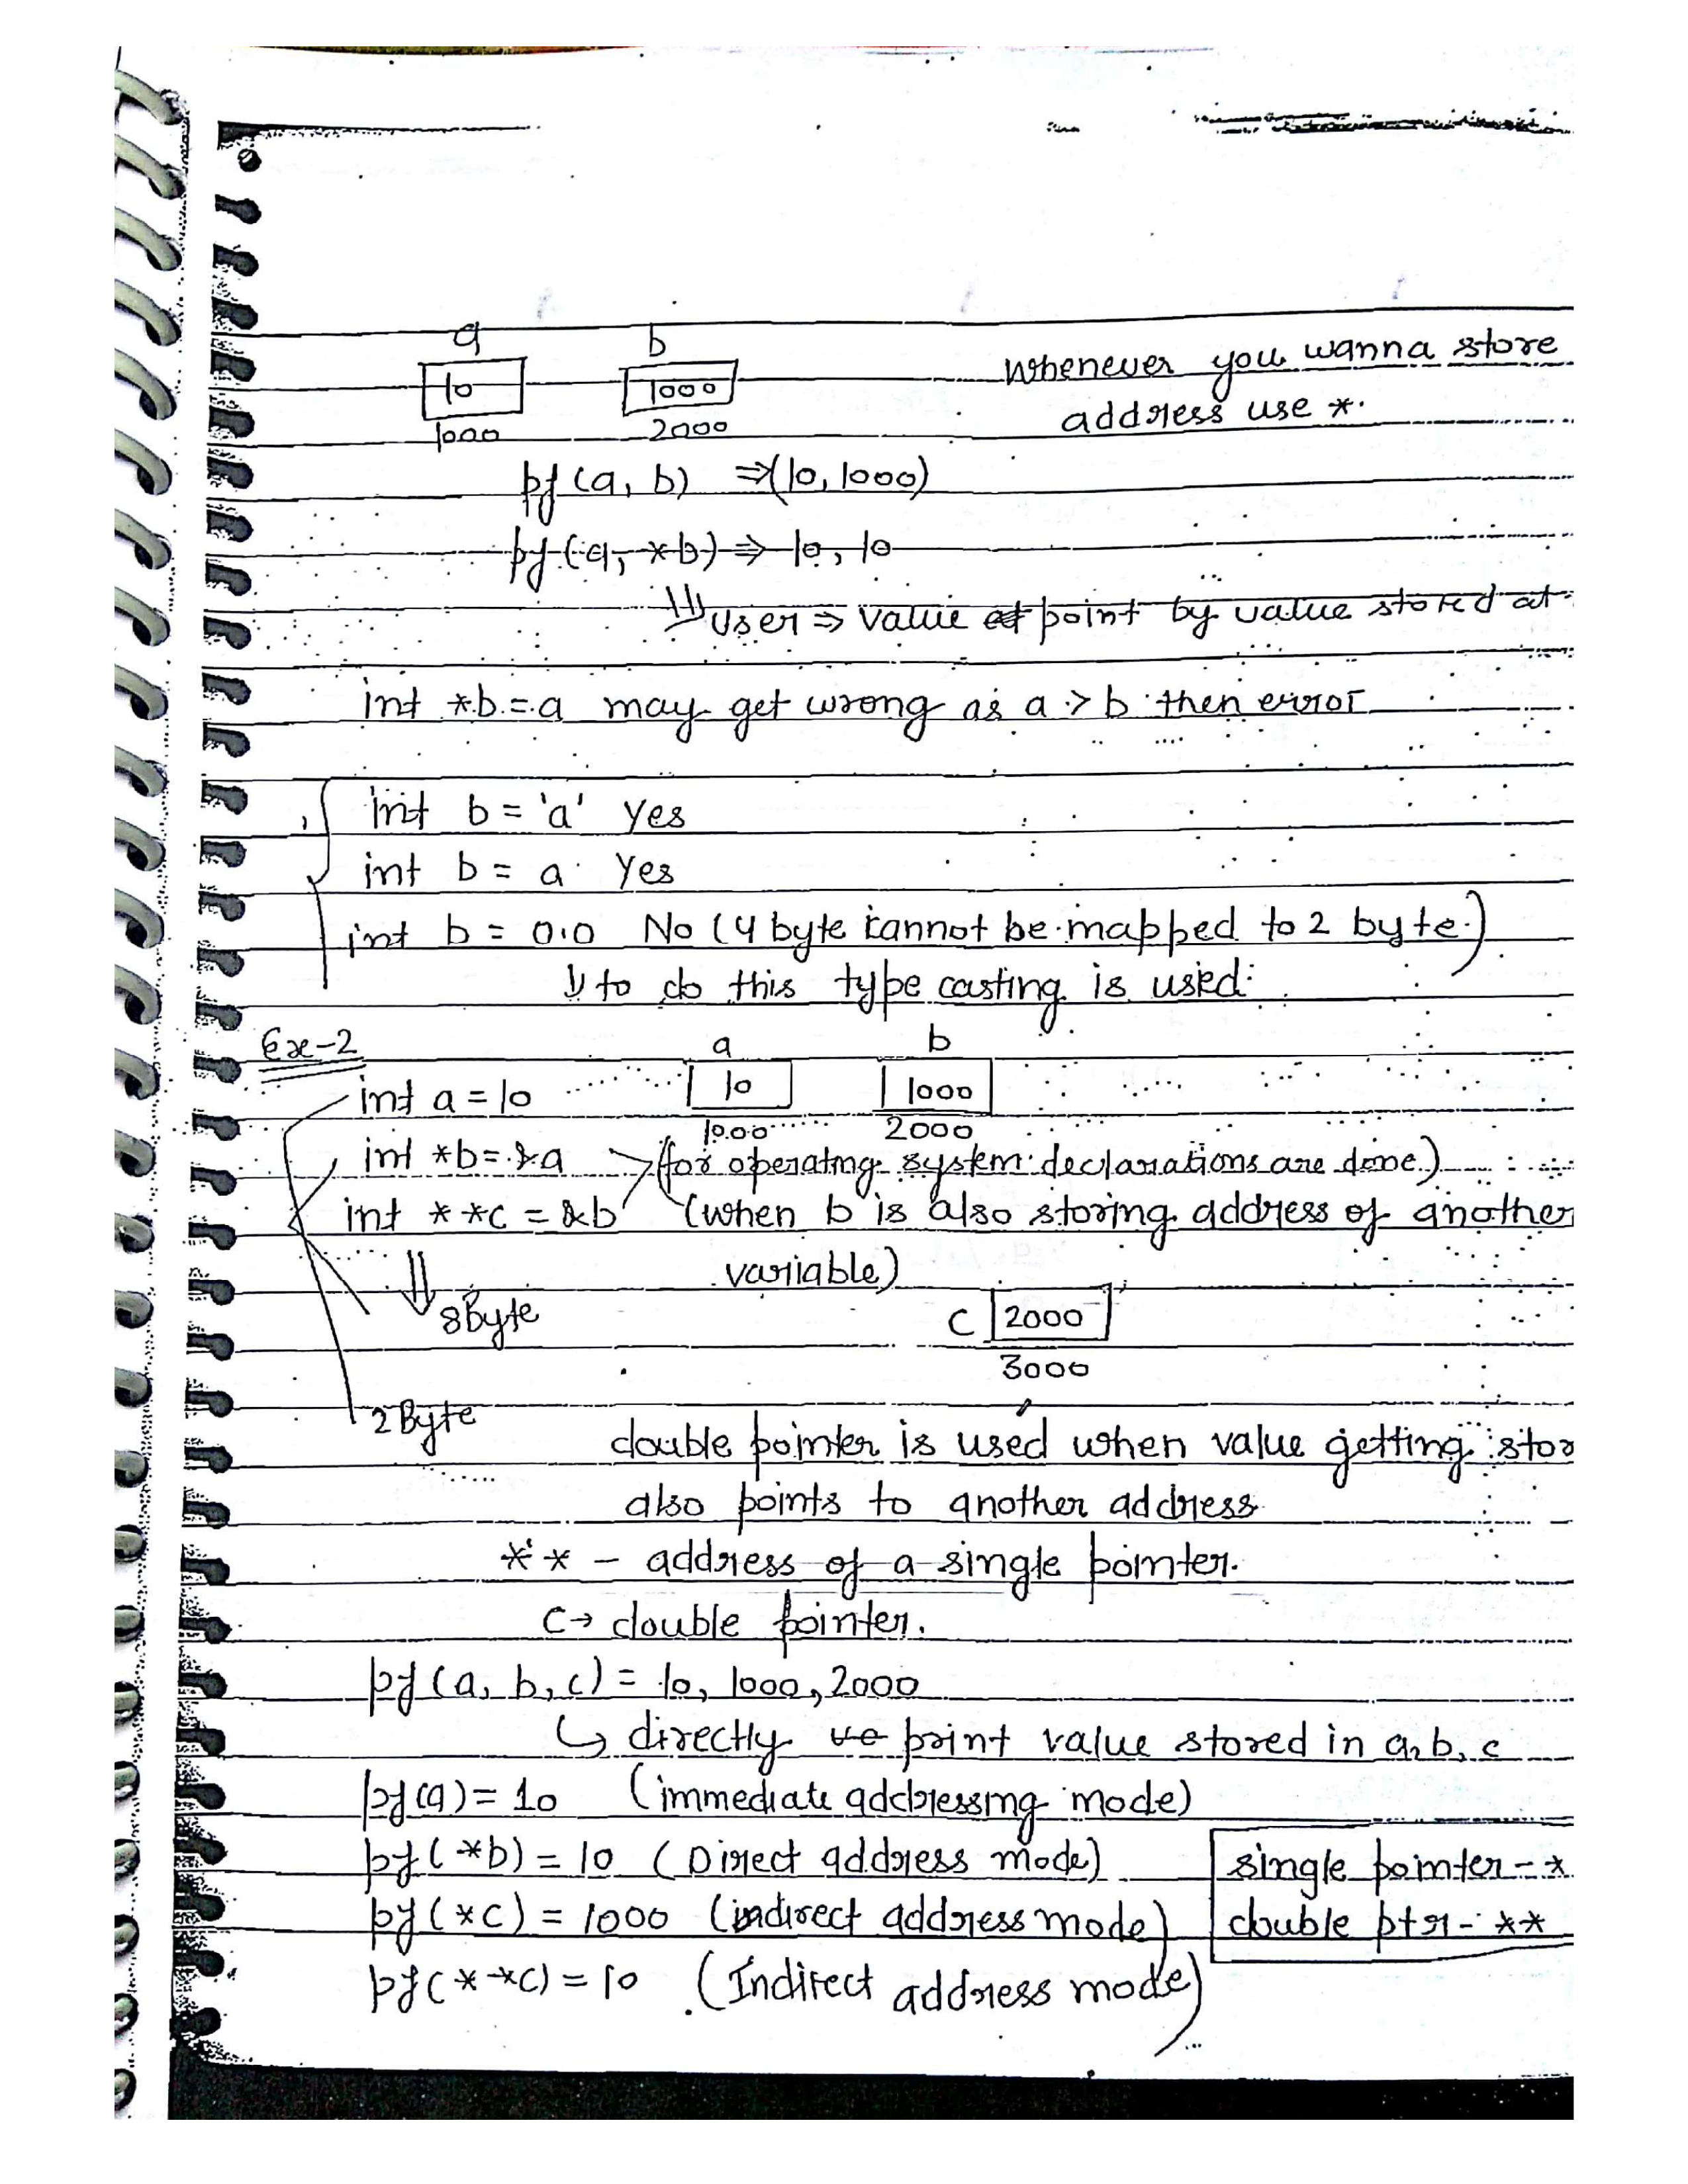 a b
10 1000 Whenever you wanna store
1000 2000 address use *.
pf (a, b) ⇒ (10, 1000)
pf (a, *b) ⇒ 10, 10
⇓ user ⇒ value point by value stored at
int *b = a may get wrong as a > b then error
int b = 'a' Yes
int b = a Yes
int b = 0.0 No (4 byte cannot be mapped to 2 byte.)
⇓ to do this type casting is used.
Ex-2 a b
int a = 10 10 1000
1000 2000
int *b = &a → (for operating system declarations are done.)
int **c = &b (when b is also storing address of another
variable)
⇓ 8 Byte C 2000
3000
2 Byte
double pointer is used when value getting stor
also points to another address
** - address of a single pointer.
C → double pointer.
pf (a, b, c) = 10, 1000, 2000
↳ directly print value stored in a, b, c
pf (a) = 10 (immediate addressing mode)
pf (*b) = 10 (Direct address mode) single pointer - *
pf (*c) = 1000 (indirect address mode) double ptr - **
pf (**c) = 10 (Indirect address mode)